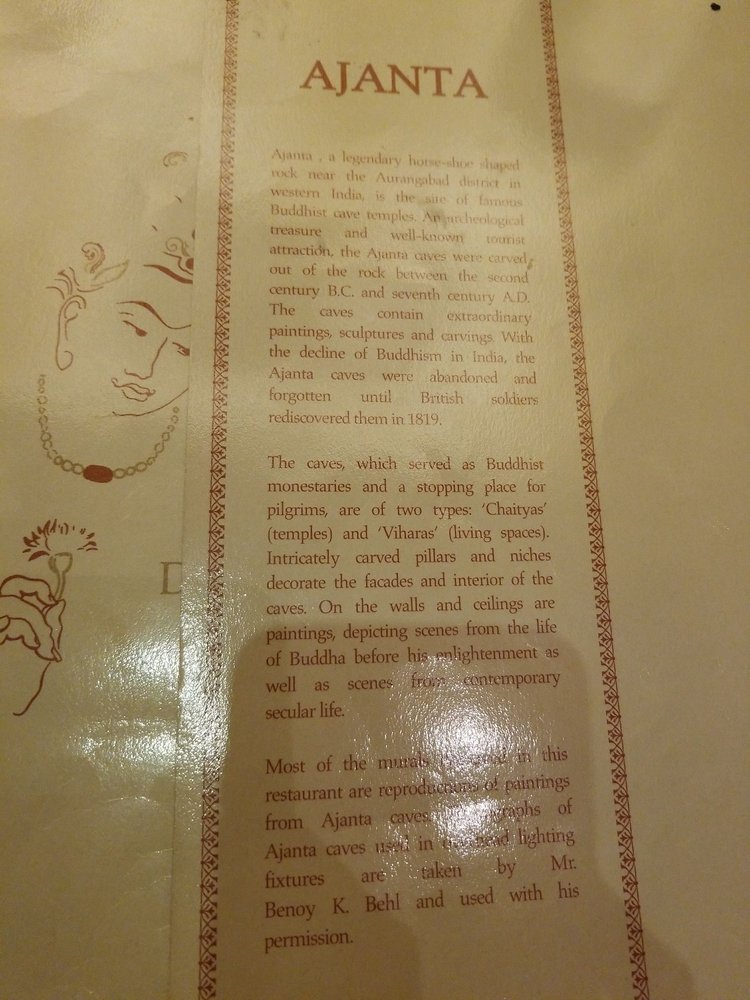 AJANTA
Ajanta , a legendary horse-shoe shaped
rock near the Aurangabad district in
western India, is the site of famous
Buddhist cave temples. An archeological
treasure and well-known tourist
attraction, the Ajanta caves were carved
out of the rock between the second
century B.C. and seventh century A.D.
The caves contain extraordinary
paintings, sculptures and carvings. With
the decline of Buddhism in India, the
Ajanta caves were abandoned and
forgotten until British soldiers
rediscovered them in 1819.
The caves, which served as Buddhist
monestaries and a stopping place for
pilgrims, are of two types: ‘Chaityas’
(temples) and ‘Viharas’ (living spaces).
Intricately carved pillars and niches
decorate the facades and interior of the
caves. On the walls and ceilings are
paintings, depicting scenes from the life
of Buddha before his enlightenment as
well as scenes from contemporary
secular life.
Most of the murals in this
restaurant are reproductions of paintings
from Ajanta caves. of
Ajanta caves used in lighting
fixtures are taken by Mr.
Benoy K. Behl and used with his
permission.
D